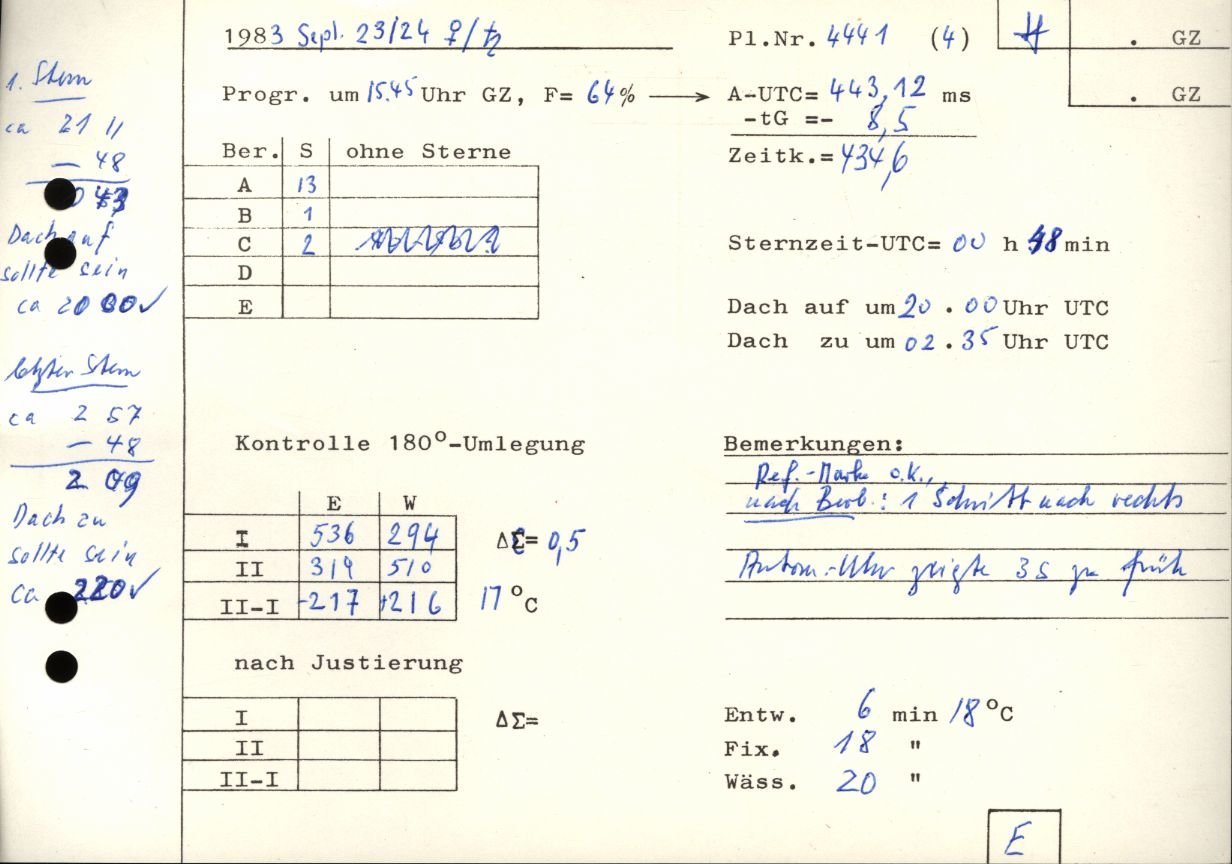 1983 Sept. 23/24 ♀/♄
Pl.Nr. 4441 (4)
. GZ
Progr. um 15.45 Uhr GZ, F= 64% → A-UTC= 443,12 ms
. GZ
-tG =- 8,5
Zeitk.= 434,6
Ber. S ohne Sterne
A 13
B 1
C 2
D
E
Sternzeit-UTC= 00 h 48 min
Dach auf um 20 . 00 Uhr UTC
Dach zu um 02 . 35 Uhr UTC
1. Stern
ca 21 11
- 48
Dach auf
sollte sein
ca 20 00 ✓
letzter Stern
ca 2 57
- 48
2 09
Dach zu
sollte sein
ca 220 ✓
Kontrolle 180°-Umlegung
E W
I 536 294
II 319 510
II-I -217 +216
ΔΣ= 0,5
17 °C
Bemerkungen:
Ref.-Marke o.k.,
nach Beob.: 1 Schritt nach rechts
Autom.-Uhr zeigte 3s zu früh
nach Justierung
I
II
II-I
ΔΣ=
Entw. 6 min 18 °C
Fix. 18 "
Wäss. 20 "
E